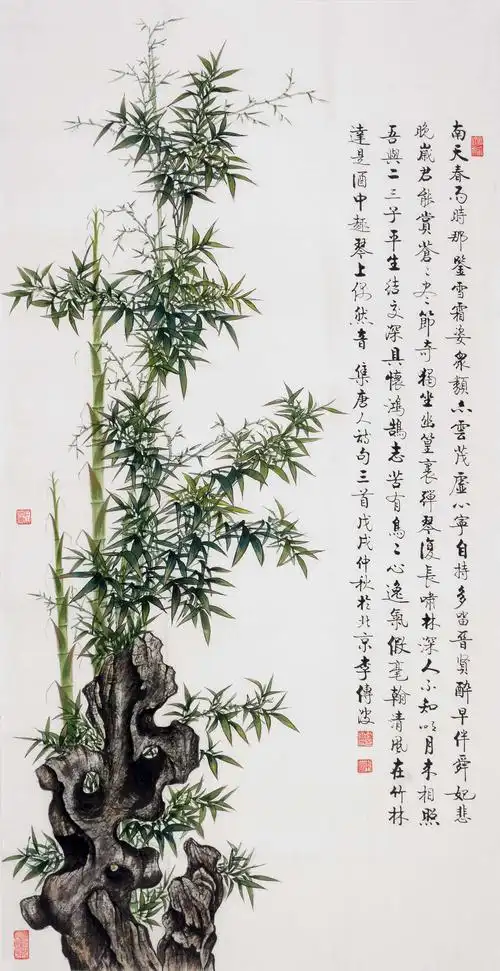 南天春雨時那鑒雪霜姿眾類亦雲茂虛心寧自持多留晉賢醉早伴舜妃悲
晚歲君能賞蒼〻節奇獨坐幽篁裏彈琴復長嘯林深人不知明月來相照
吾與二三子平生結交深具懷鴻鵠志有心逸氣假毫翰清風在竹林
達是酒中趣琴上偶然音 集唐人詩句三首戊戌仲秋於北京李傳波